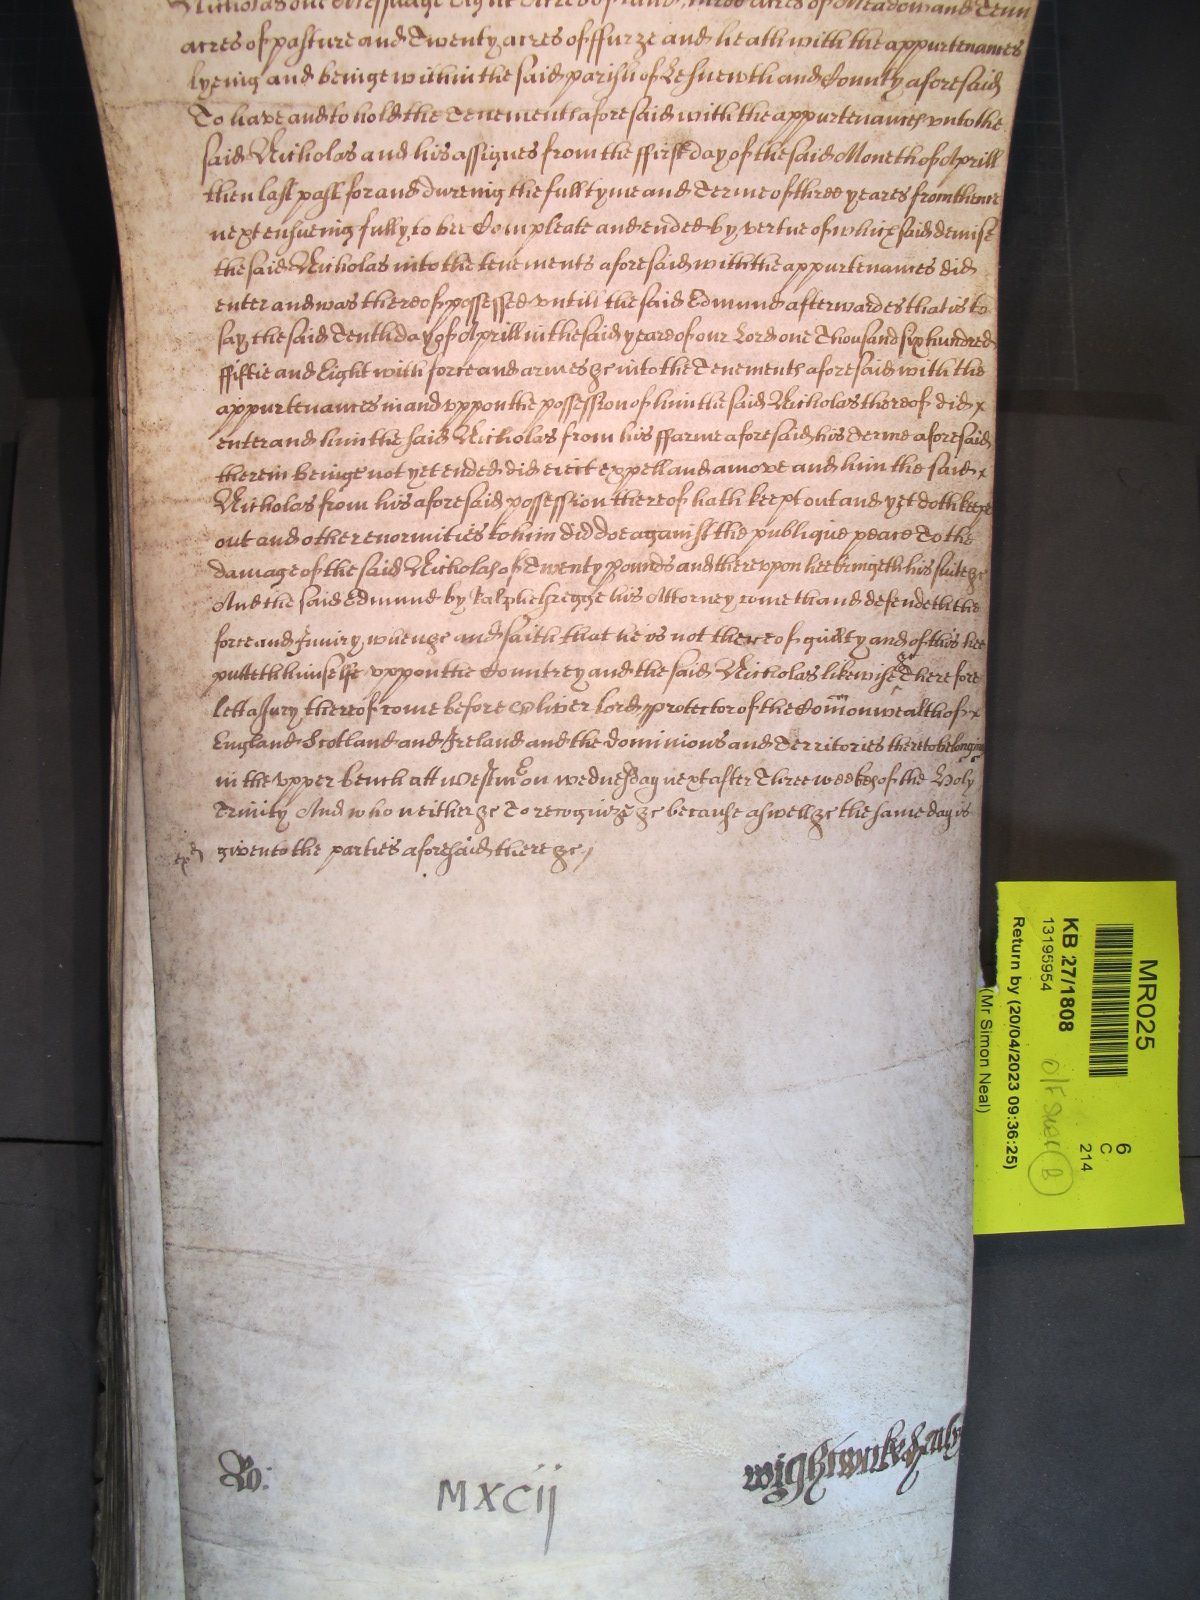 Nicholas one Messuage Eight Acres of land, three acres of Meadow and Tenn
acres of pasture and Twenty acres of ffurze and heath with the appurtenances
lyeing and beinge within the said parish of Lesnewth and County aforesaid
To have and to hold the Tenements aforesaid with the appurtenances unto the
said Nicholas and his assignes from the ffirst day of the said Moneth of Aprill
then last past for and dureing the full tyme and Terme of three yeares from thence
next ensueing fully to bee Compleate and ended by vertue of which said demise
the said Nicholas into the tenements aforesaid with the appurtenances did
enter and was thereof possessed untill the said Edmund afterwardes that is to
say the said Tenth day of Aprill in the said yeare of our Lord one Thousand six hundred
ffiftie and Eight with force and armes &c into the Tenements aforesaid with the
appurtenances in and uppon the possession of him the said Nicholas thereof did x
enter and him the said Nicholas from his ffarme aforesaid his terme aforesaid
therein beinge not yet ended did eiect expell and amove and him the said x
Nicholas from his aforesaid possession thereof hath keept out and yet doth keepe
out and other enormities to him did doe against the publique peace To the
damage of the said Nicholas of Twenty pounds and thereuppon hee bringeth his suite &c
And the said Edmund by his Attorney cometh and defendeth the
force and Iniury when &c and saith that he is not thereof guilty and of this hee
putteth himselfe uppon the Countrey and the said Nicholas likewise &c Therefore
lett a Jury thereof come before Oliver Lord protector of the Comonwealth of x
England Scotland and Ireland and the dominions and Territories thereto belonging
in the upper bench att Westmr on wednesday next after Three weekes of the Holy
Trinity And who neither &c To recognize &c because aswell &c the same day is
given to the parties aforesaid there &c /
Ro:
MXCij
wightwick
MR025
KB 27/1808
13195954
Return by (20/04/2023 09:36:25)
(Mr Simon Neal)
6
C
214
B